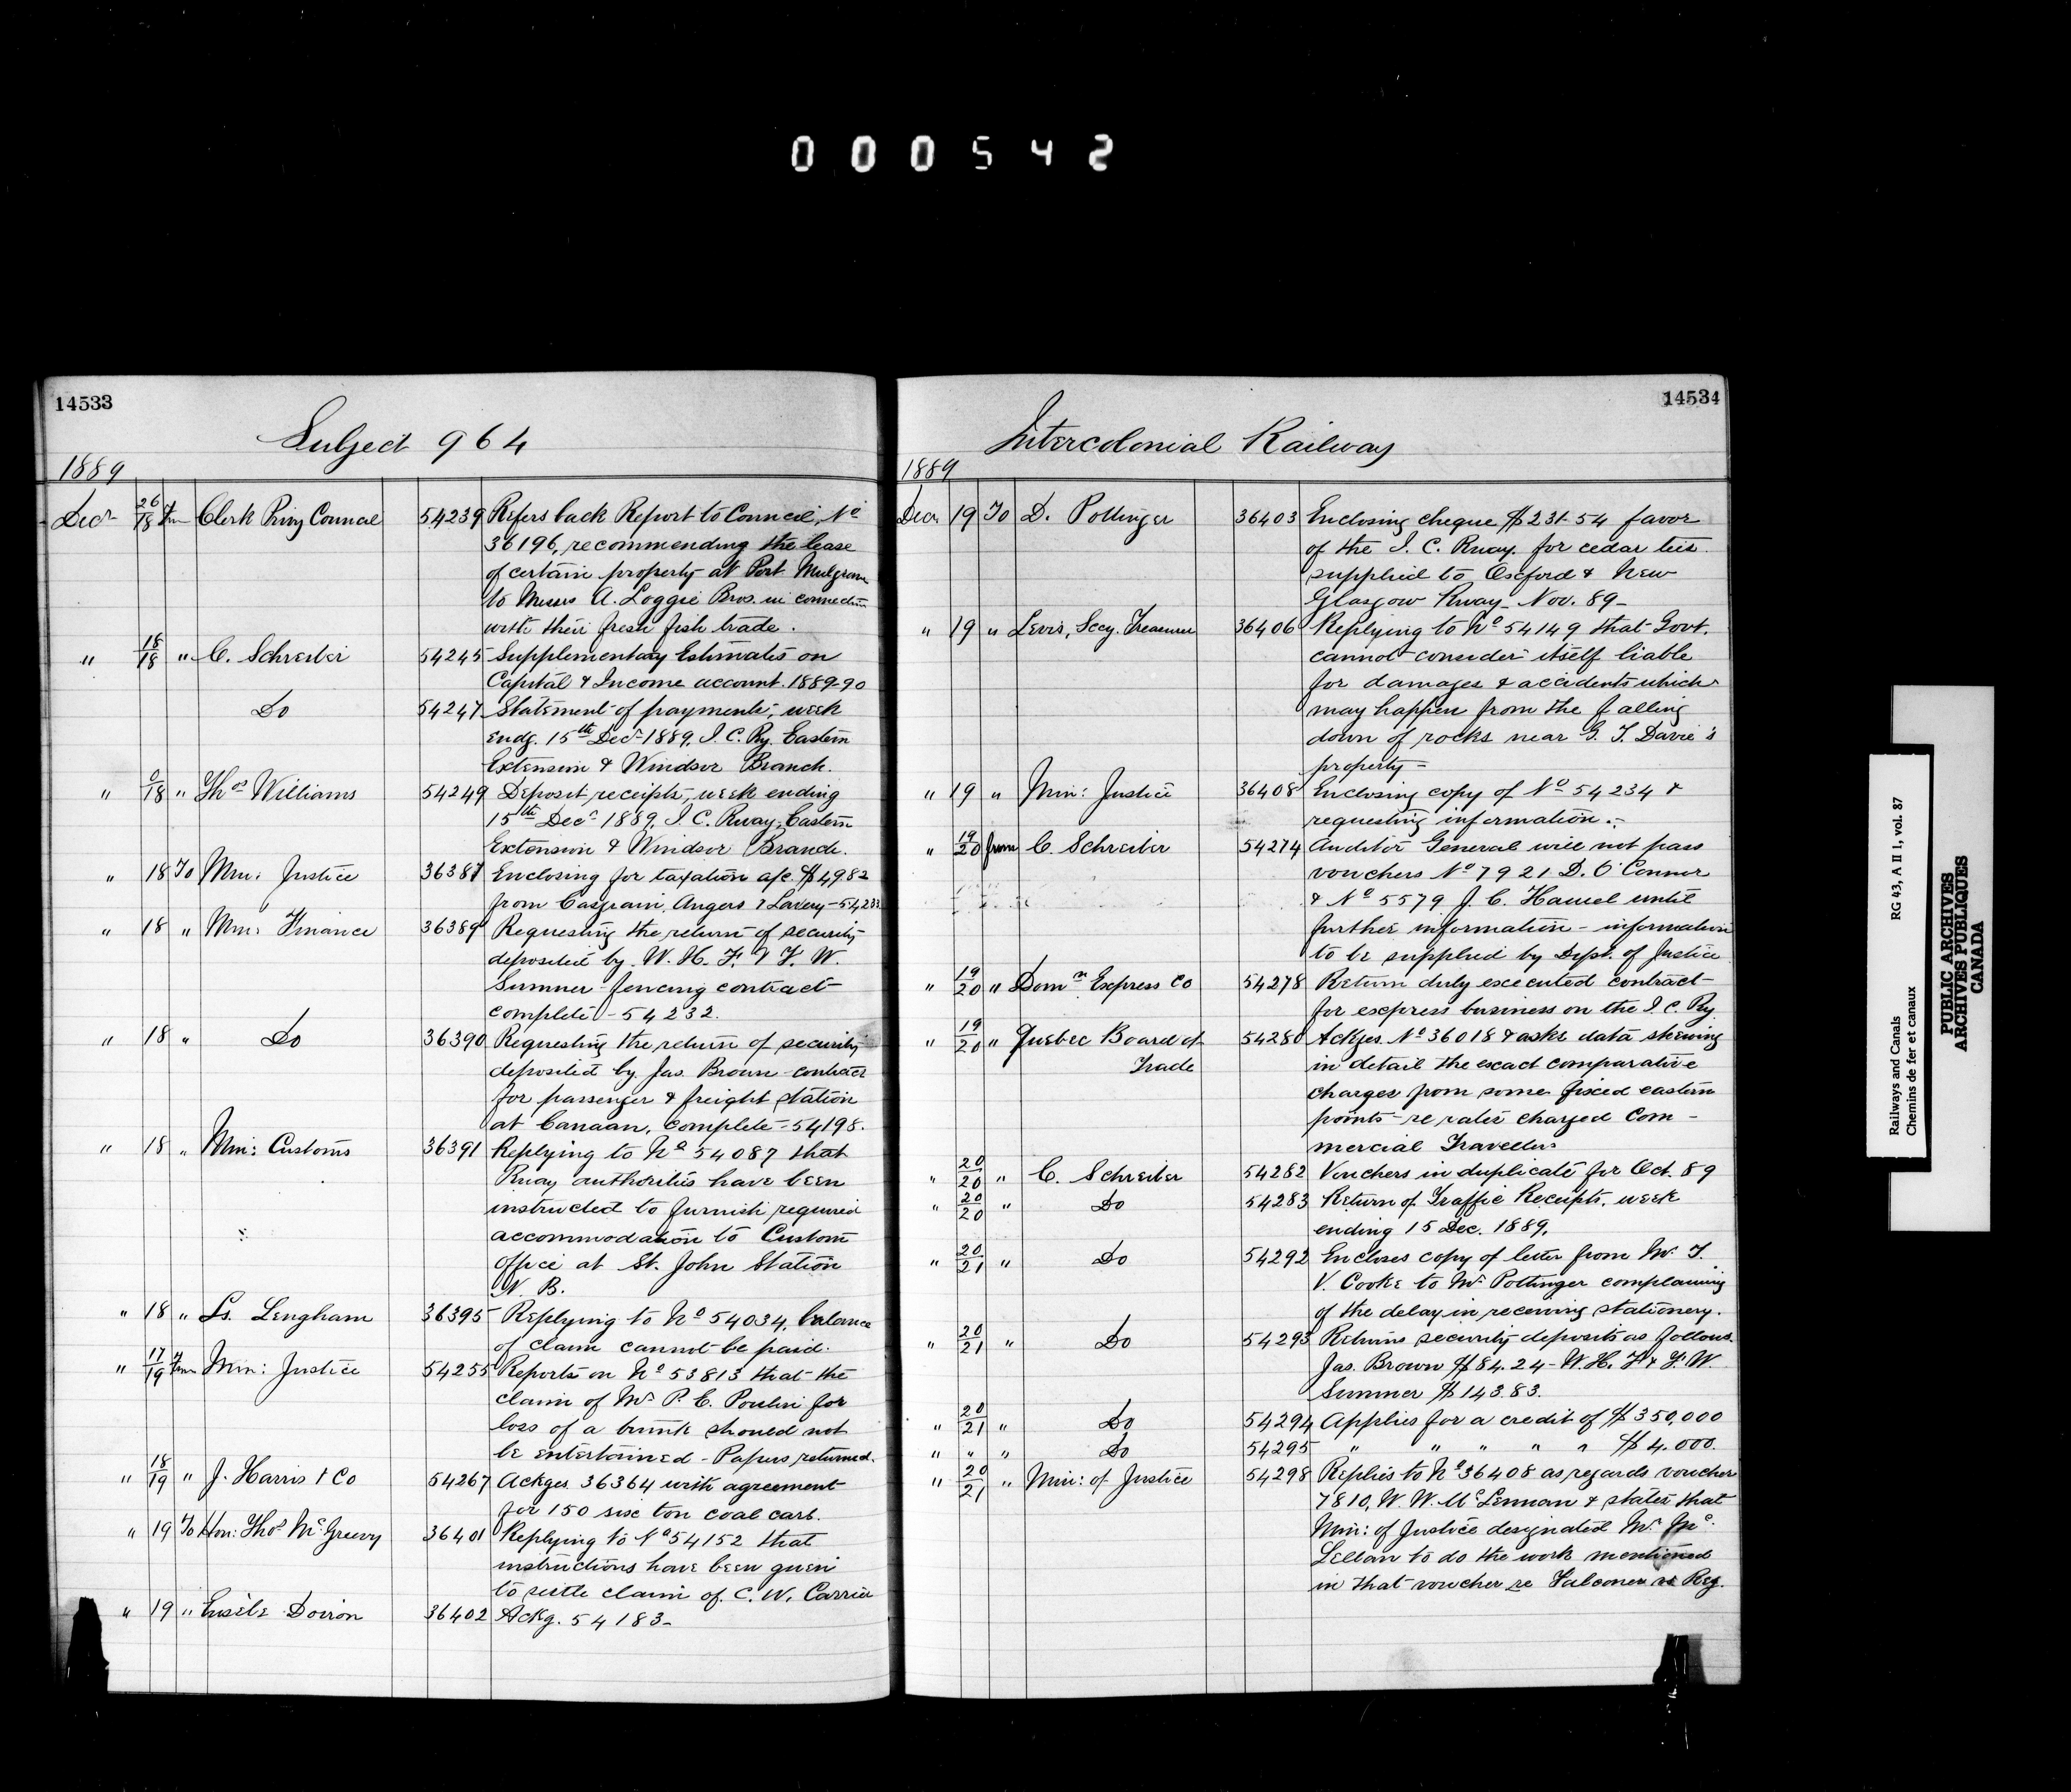 000542
14533
Subject 964
1889
Decr 26/18 from Clerk Privy Council 54239 Refers back Report to Council, No
36196, recommending the lease
of certain property at Port Mulgrave
to Messrs A. Loggie Bros. in connection
with their fresh fish trade.
" 18/18 " C. Schreiber 54245 Supplementary Estimates on
Capital & Income account. 1889-90
Do 54247 Statement of payments, week
endg. 15th Decr 1889, I. C. Ry. Eastern
Extension & Windsor Branch.
" 0/18 " Thos Williams 54249 Deposit receipts, week ending
15th Decr 1889, I. C. Rway, Eastern
Extension & Windsor Branch.
" 18 To Min: Justice 36387 Enclosing for taxation a/c. $49.82
from Casgrain, Angers & Lavery - 54233
" 18 " Min: Finance 36389 Requesting the return of security
deposited by W. H. F. & F. W.
Sumner - fencing contract
complete - 54232.
" 18 " Do 36390 Requesting the return of security
deposited by Jas. Brown - contract
for passenger & freight station
at Canaan, complete - 54198.
" 18 " Min: Customs 36391 Replying to No 54087 that
Rway authorities have been
instructed to furnish required
accommodation to Custom
Office at St. John Station
N. B.
" 18 " Ls. Lengham 36395 Replying to No 54034, balance
of claim cannot be paid.
" 17/19 from Min: Justice 54255 Reports on No 53813 that the
claim of Mr P. E. Poulin for
loss of a trunk should not
be entertained - Papers returned.
" 18/19 " J. Harris & Co 54267 Ackges. 36364 with agreement
for 150 six ton coal cars.
" 19 To Hon: Thos McGreevy 36401 Replying to No 54152 that
instructions have been given
to settle claim of C. W. Carrier
" 19 " Doiron 36402 Ackg. 54183 -
14534
Intercolonial Railway
1889
Decr 19 To D. Pottinger 36403 Enclosing cheque $231.54 favor
of the I. C. Rway. for cedar ties
supplied to Oxford & New
Glasgow Rway - Nov. 89 -
" 19 " Levis, Secy. Treasurer 36406 Replying to No 54149 that Govt.
cannot consider itself liable
for damages & accidents which
may happen from the falling
down of rocks near G. T. Davie's
property -
" 19 " Min: Justice 36408 Enclosing copy of No 54234 &
requesting information. -
" 19/20 from C. Schreiber 54274 Auditor General will not pass
vouchers No 7921 D. O'Connor
& No 5579 J. C. Hamel until
further information - information
to be supplied by Dept. of Justice
" 19/20 " Domn Express Co 54278 Return duly executed contract
for express business on the I. C. Ry.
" 19/20 " Quebec Board of
Trade 54280 Ackges. No 36018 & asks data shewing
in detail the exact comparative
charges from some fixed eastern
points - re rates charged Com-
mercial Travellers
" 20/20 " C. Schreiber 54282 Vouchers in duplicate for Oct. 89
" 20/20 " Do 54283 Return of Traffic Receipts, week
ending 15 Dec. 1889.
" 20/21 " Do 54292 Encloses copy of letter from Mr. T.
V. Cooke to Mr Pottinger complaining
of the delay in receiving stationery.
" 20/21 " Do 54293 Returns security deposits as follows.
Jas. Brown $84.24 - W. H. F. & F. W.
Sumner $143.83.
" 20/21 " Do 54294 Applies for a credit of $350,000
" " " Do 54295 " " " " " $4.000.
" 20/21 " Min: of Justice 54298 Replies to No 36408 as regards voucher
7810, W. W. McLennan & states that
Min: of Justice designated Mr. Mc
Lellan to do the work mentioned
in that voucher re Falconer vs Reg.
Railways and Canals RG 43, A II 1, vol. 87
Chemins de fer et canaux
PUBLIC ARCHIVES
ARCHIVES PUBLIQUES
CANADA